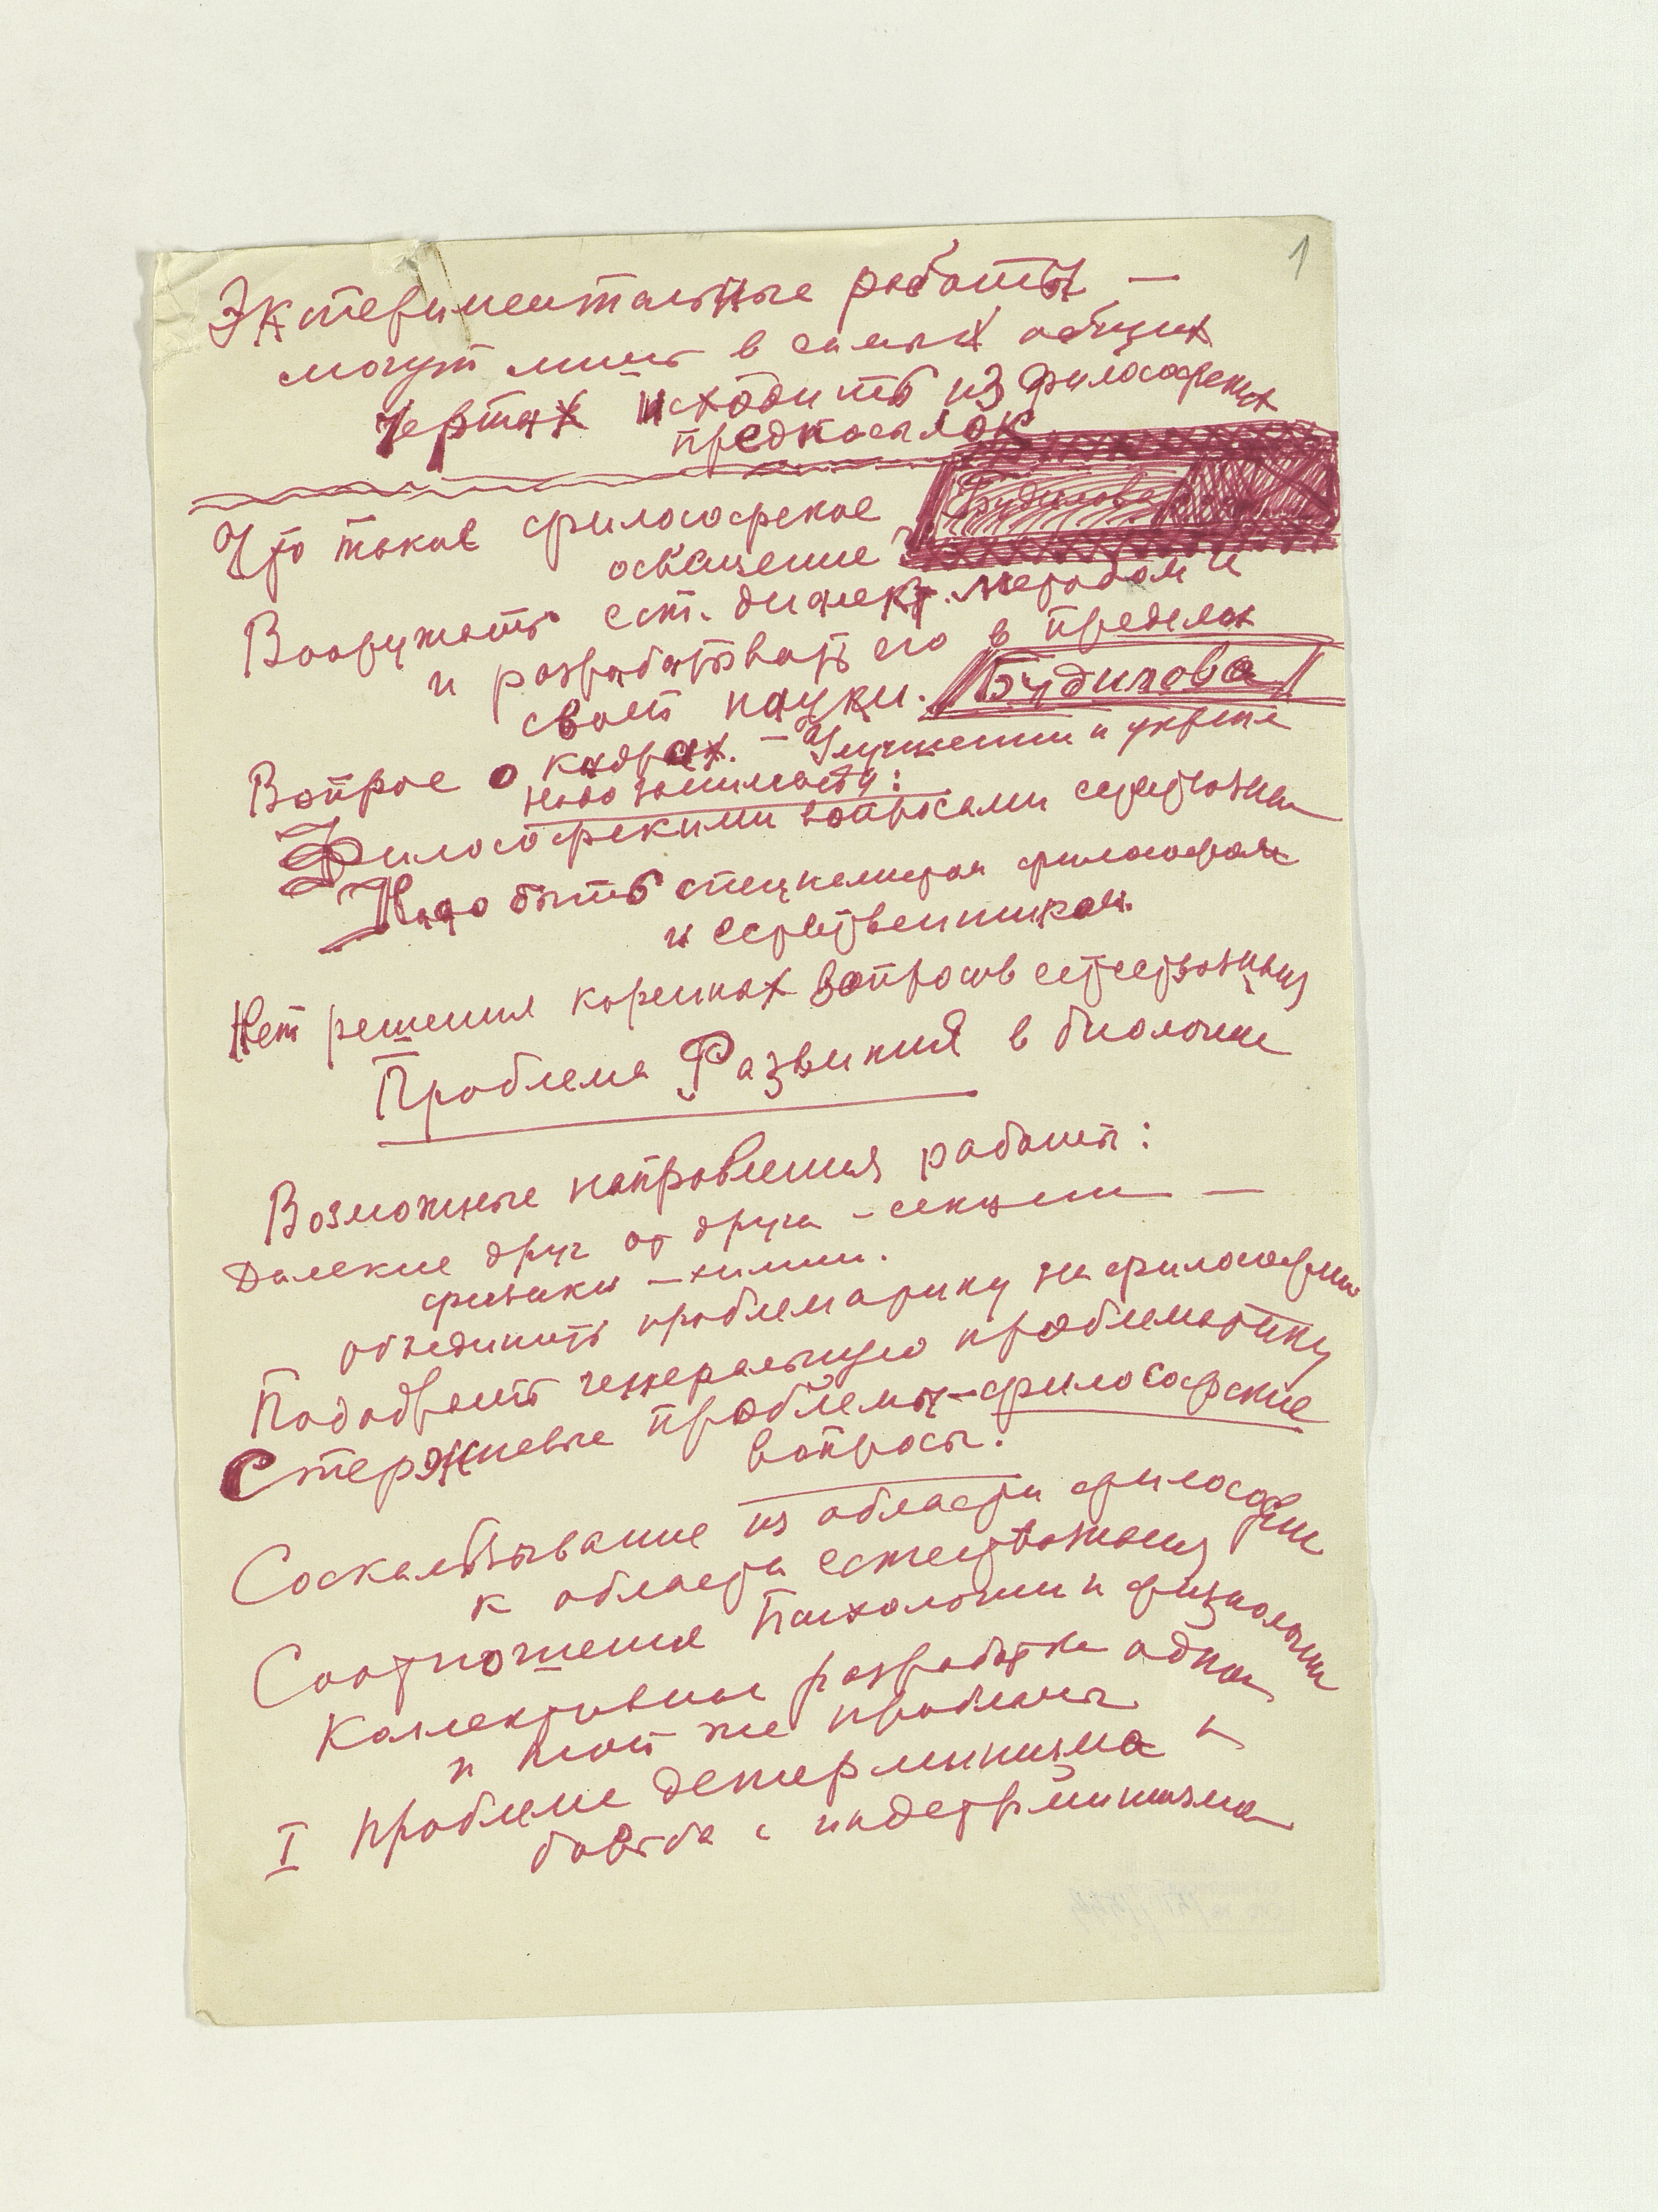 1
Экспериментальные работы —
могут лишь в самых общих
чертах исходить из философских
предпосылок
Что такое философское Будилова
освещение
Вооружать ест. диалект. методом и
и разрабатывать его в пределах
своей науки. Будилова
Вопрос о кадрах. — Улучшении и укрепле
надо заниматься:
Философскими вопросами естествозна
Надо быть специалистом философом
и естественником.
Нет решения коренных вопросов естествознания
Проблема Развития в биологии
Возможные направления работы:
Далекие друг от друга – секции —
физики – химии.
объединить проблематику на философии
Подобрать генеральную проблематику
Стержневые проблемы – философские
вопросы.
Соскальзывание из области философии
к области естествознания
Соотношение психологии и физиологии
Коллективная разработка одной
и той же проблемы
I проблеме детерминизма и
борьба с индетерминизма